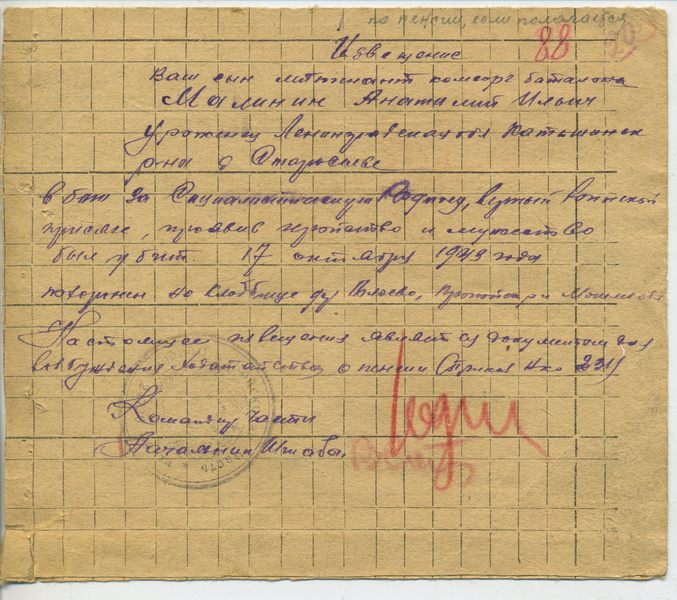 по пенсии, если полагается
88
Извещение
Ваш сын литинант комсорг баталона
Малинин Анатилий Ильич
урожениц Ленинградская обл
рна д
в бою за Социалистическую Родину, верный воинской
присяге, проявив геройство и мужество
был убит 17 октября 1943 года
похоронен на кладбище
Настоящее извещения является документом для
возбуждения ходатайства о пенсии (Приказ Нко 231)
Командир части
Начальник Штаба.